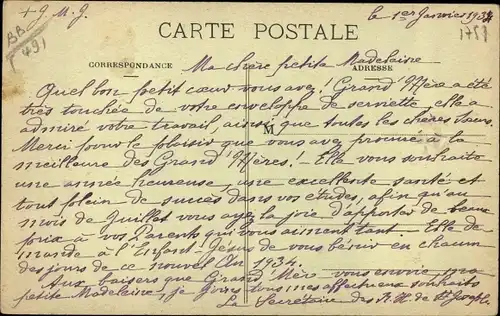 + J. M. J.
le 1er Janvier 1934
CARTE POSTALE
CORRESPONDANCE
ADRESSE
Ma chère petite Madeleine
Quel bon petit cœur vous avez! Grand'Mère a été
très touchée de votre enveloppe de serviette, elle a
admiré votre travail, ainsi que toutes les chères Sœurs.
Merci pour le plaisir que vous avez procuré à la
meilleure des Grand'Mères! Elle vous souhaite
une année heureuse, une excellente santé et
tout plein de succès dans vos études, afin qu'au
mois de Juillet vous ayez la joie d'apporter de beaux
prix à vos Parents qui vous aiment tant. Elle de
mande à l'Enfant-Jésus de vous bénir en chacun
des jours de ce nouvel An 1934.
Aux baisers que Grand'Mère vous envoie, ma
petite Madeleine, je joins tous mes affectueux souhaits
La Secrétaire des P. S. de St Joseph